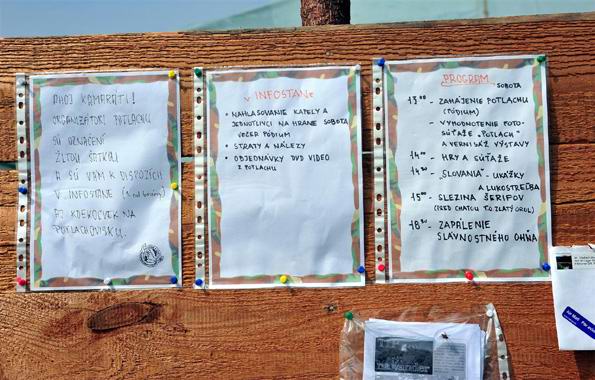 AHOJ KAMARÁTI!
ORGANIZÁTORI POTLACHU
SÚ OZNAČENÍ
ŽLTOU ŠATKOU
A SÚ VÁM K DISPOZÍCII
V INFOSTANE
AJ KDEKOĽVEK NA
POTLACHOVISKU.
V INFOSTANE
• NAHLASOVANIE KAPELY A
JEDNOTLIVCI NA HRANIE SOBOTA
VEČER PÓDIUM
• STRATY A NÁLEZY
• OBJEDNÁVKY DVD VIDEO
Z POTLACHU
PROGRAM
SOBOTA
13⁰⁰ - ZAHÁJENIE POTLACHU
(PÓDIUM)
- VYHODNOTENIE FOTO-
SÚŤAŽE "POTLACH"
A VERNISÁŽ VÝSTAVY
14⁰⁰ - HRY A SÚŤAŽE
14³⁰ - „SLOVANIA" - UKÁŽKY
A LUKOSTREĽBA
15⁰⁰ - SLEZINA ŠERIFOV
(PRED CHATOU T.O. ZLATÝ OROL)
18³⁰ - ZAPÁLENIE
SLÁVNOSTNÉHO OHŇA